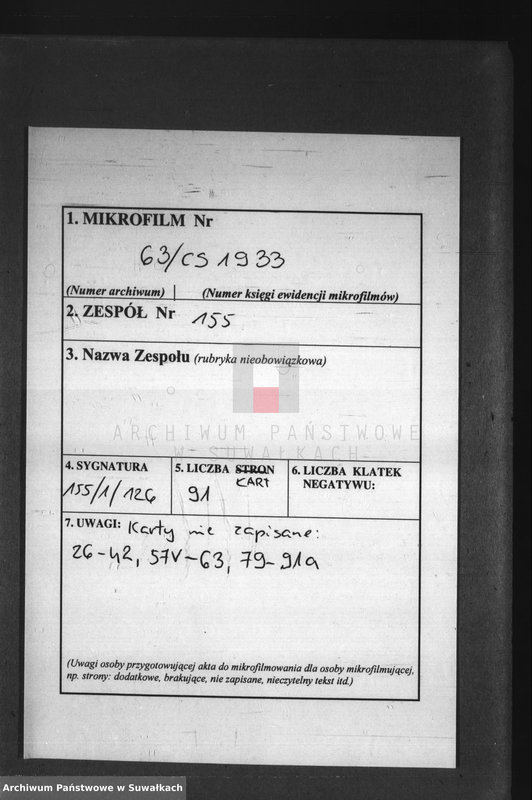 1. MIKROFILM Nr
63/CS 1933
(Numer archiwum) (Numer księgi ewidencji mikrofilmów)
2. ZESPÓŁ Nr 155
3. Nazwa Zespołu (rubryka nieobowiązkowa)
ARCHIWUM PAŃSTWOWE
W SUWAŁKACH
4. SYGNATURA
155/1/126
5. LICZBA STRON
KART
91
6. LICZBA KLATEK
NEGATYWU:
7. UWAGI: Karty nie zapisane:
26-42, 57V-63, 79-91a
(Uwagi osoby przygotowującej akta do mikrofilmowania dla osoby mikrofilmującej,
np. strony: dodatkowe, brakujące, nie zapisane, nieczytelny tekst itd.)
Archiwum Państwowe w Suwałkach